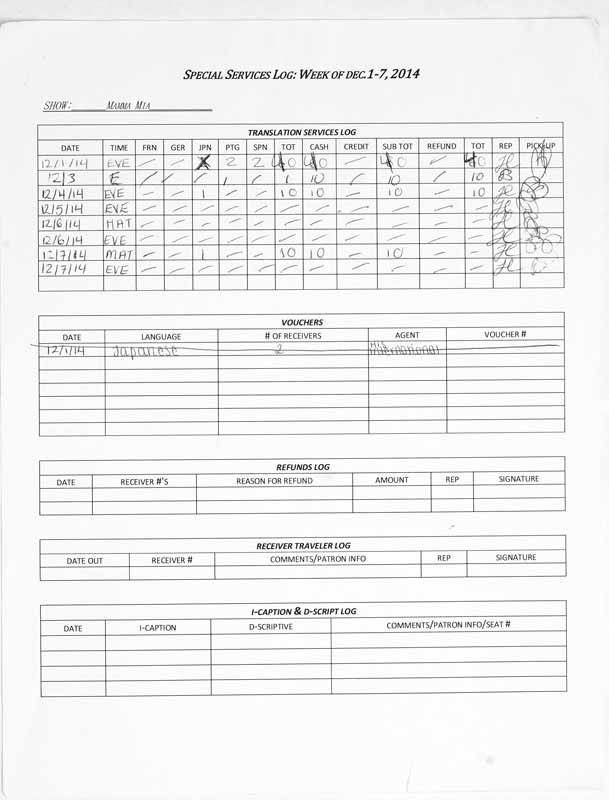 SPECIAL SERVICES LOG: WEEK OF DEC.1-7, 2014
SHOW: MAMMA MIA
TRANSLATION SERVICES LOG
DATE TIME FRN GER JPN PTG SPN TOT CASH CREDIT SUB TOT REFUND TOT REP PICK-UP
12/1/14 EVE — — — 2 2 40 40 — 40 — 40 JL
12/3 E / / / 1 / 1 10 / 10 — 10
12/4/14 EVE — — 1 — — 10 10 — 10 — 10 JL
12/5/14 EVE — — — — — — — — — — — JL
12/6/14 MAT — — — — — — — — — — — JL
12/6/14 EVE — — — — — — — — — — — JL
12/7/14 MAT — — 1 — — 10 10 — 10 — — JL
12/7/14 EVE — — — — — — — — — — — JL
VOUCHERS
DATE LANGUAGE # OF RECEIVERS AGENT VOUCHER #
12/1/14 Japanese 2 International
REFUNDS LOG
DATE RECEIVER #'S REASON FOR REFUND AMOUNT REP SIGNATURE
RECEIVER TRAVELER LOG
DATE OUT RECEIVER # COMMENTS/PATRON INFO REP SIGNATURE
I-CAPTION & D-SCRIPT LOG
DATE I-CAPTION D-SCRIPTIVE COMMENTS/PATRON INFO/SEAT #